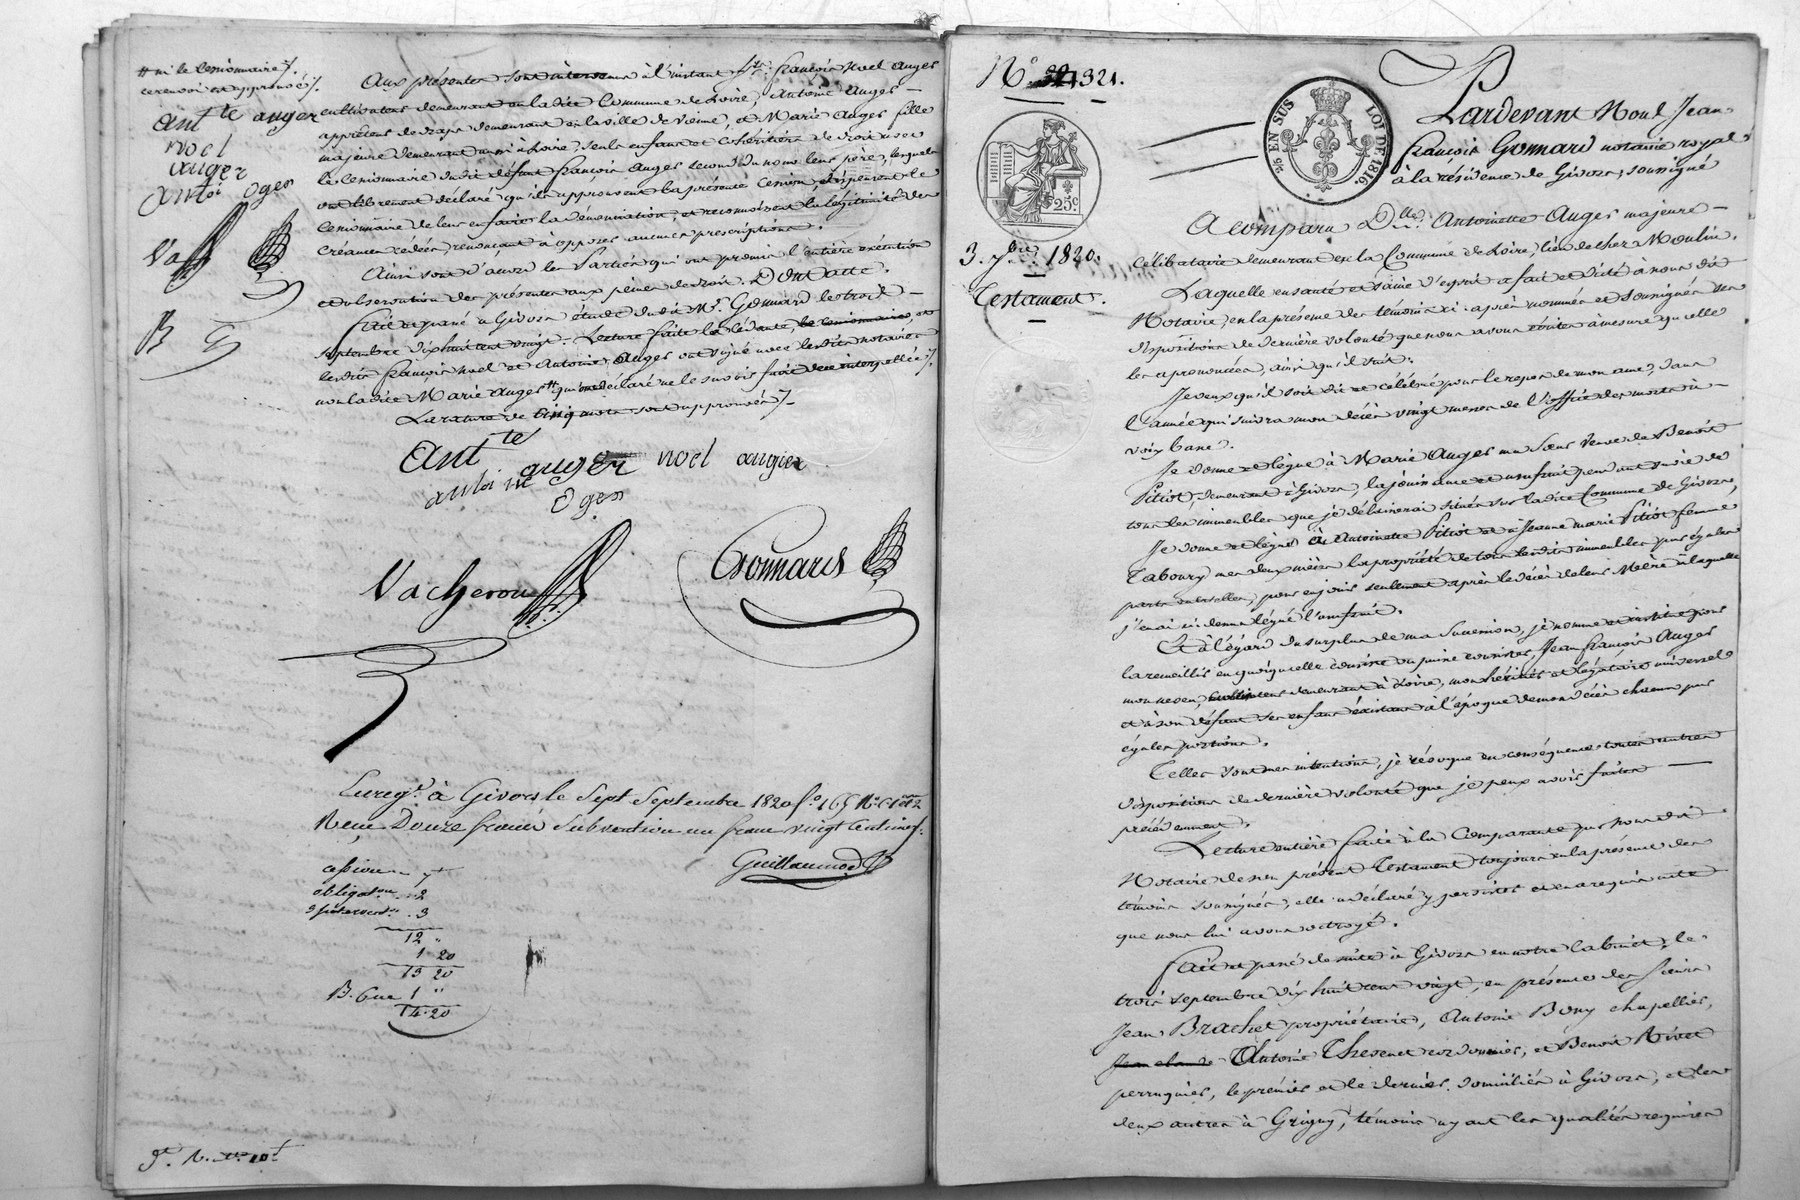 # ni le cessionnaire /.
ce renvoi est approuvé /.
ant.te auger
noel
auger
antoi Oger
Va
B
Aux présentes sont intervenus à l'instant Srs. françois Noel Auger
cultivateur demeurant en ladite Commune de Loire, Antoine Auger
apprêteur de draps demeurant en la ville de vienne, et Marie Auger fille
majeure demeurant aussi à Loire; seuls enfans et cohéritiers de droit avec
le cessionnaire dudit défunt françois Auger second du nom leur père, lesquels
ont librement déclaré qu'ils approuvent la présente Cession, dispensent le
cessionnaire de leur en faire la dénonciation, et reconnoissent la légitimité des
Créances cédées, renonçant à opposer aucunes prescriptions.
Ainsi sont d'accord les Parties qui ont promis l'entière exécution
et observation des présentes aux peines de droit. Dont acte.
fait et passé à Givors étude dudit Mr. Gonnard le trois
septembre dix huit cent vingt. Lecture faite la cédante, le cessionnaire, et
lesdits françois Noel et Antoine Auger ont signé avec lesdits notaires
non ladite Marie Auger # qui ont déclaré ne le savoir faire de ce interpellée /.
La rature de cinq mots sont approuvés /.
ant.te
auger noel auger
antoine
Oger
Vacheron Gonnard
Enregt. à Givors le Sept Septembre 1820 fo. 165 No. C. 1 et 2
Reçu Douze francs Subvention un franc vingt Centimes.
Guillaumod
cession 7
obligaton. 2
3 3
12 "
1 20
13 20
1 "
14.20
No. 321.
25 c.
3. 7bre. 1820.
Testament.
25 EN SUS
LOI DE 1816.
Pardevant Nous Jean
françois Gonnard notaire royal
à la résidence de Givors, soussigné
A comparu Dlle. Antoinette Auger majeure
Célibataire demeurant en la Commune de Loire, lieu de cher Moulin.
Laquelle en santé et saine d'esprit a fait et dicté à nous dit
Notaire, en la présence des témoins ci après nommés et soussignés ses
dispositions de dernière volonté que nous avons écrites à mesure qu'elle
les a prononcées, ainsi qu'il suit:
Je veux qu'il soit dit et célébré pour le repos de mon ame, dans
l'année qui suivra mon décès vingt messes de l'office des morts à
voix basse.
Je donne et lègue à Marie Auger ma Sœur Veuve de Benoit
Pitiot, demeurant à Givors, la jouissance et usufruit pendant sa vie de
tous les immeubles que je délaisserai situés sur ladite Commune de Givors,
Je donne et lègue à Antoinette Pitiot et à Jeanne marie Pitiot femme
Taboury mes deux nièces la propriété de tous lesdits immeubles par égales
parts entr'elles, pour en jouir seulement après le décès de leur Mère à laquelle
j'en ai ci dessus légué l'usufruit.
Et à l'égard du surplus de ma Succession, je nomme et institue pour
la recueillir en quoi qu'elle consiste ou puisse consister, Jean françois Auger
mon neveu, cultivateur demeurant à Loire, mon héritier et légataire universel
et à son défaut ses enfans existans à l'époque de mon décès chacun par
égales portions.
Telles sont mes intentions, je révoque en conséquence toutes autres
dispositions de dernière volonté que je peux avoir faites
précédemment.
Lecture entière faite à la Comparante par nous dit
Notaire de son présent Testament toujours en la présence des
témoins soussignés, elle a déclaré y persister et en a requis acte
que nous lui avons octroyé.
fait et passé de suite à Givors en notre Cabinet, le
trois septembre dix huit cent vingt, en présence des sieurs
Jean Brachet propriétaire, Antoine Bony chapellier,
Jean claude Antoine Thevenet cordonnier, et Benoit Rivat
perruquier, le premier et le dernier domiciliés à Givors, et les
deux autres à Grigny, témoins ayant les qualités requises